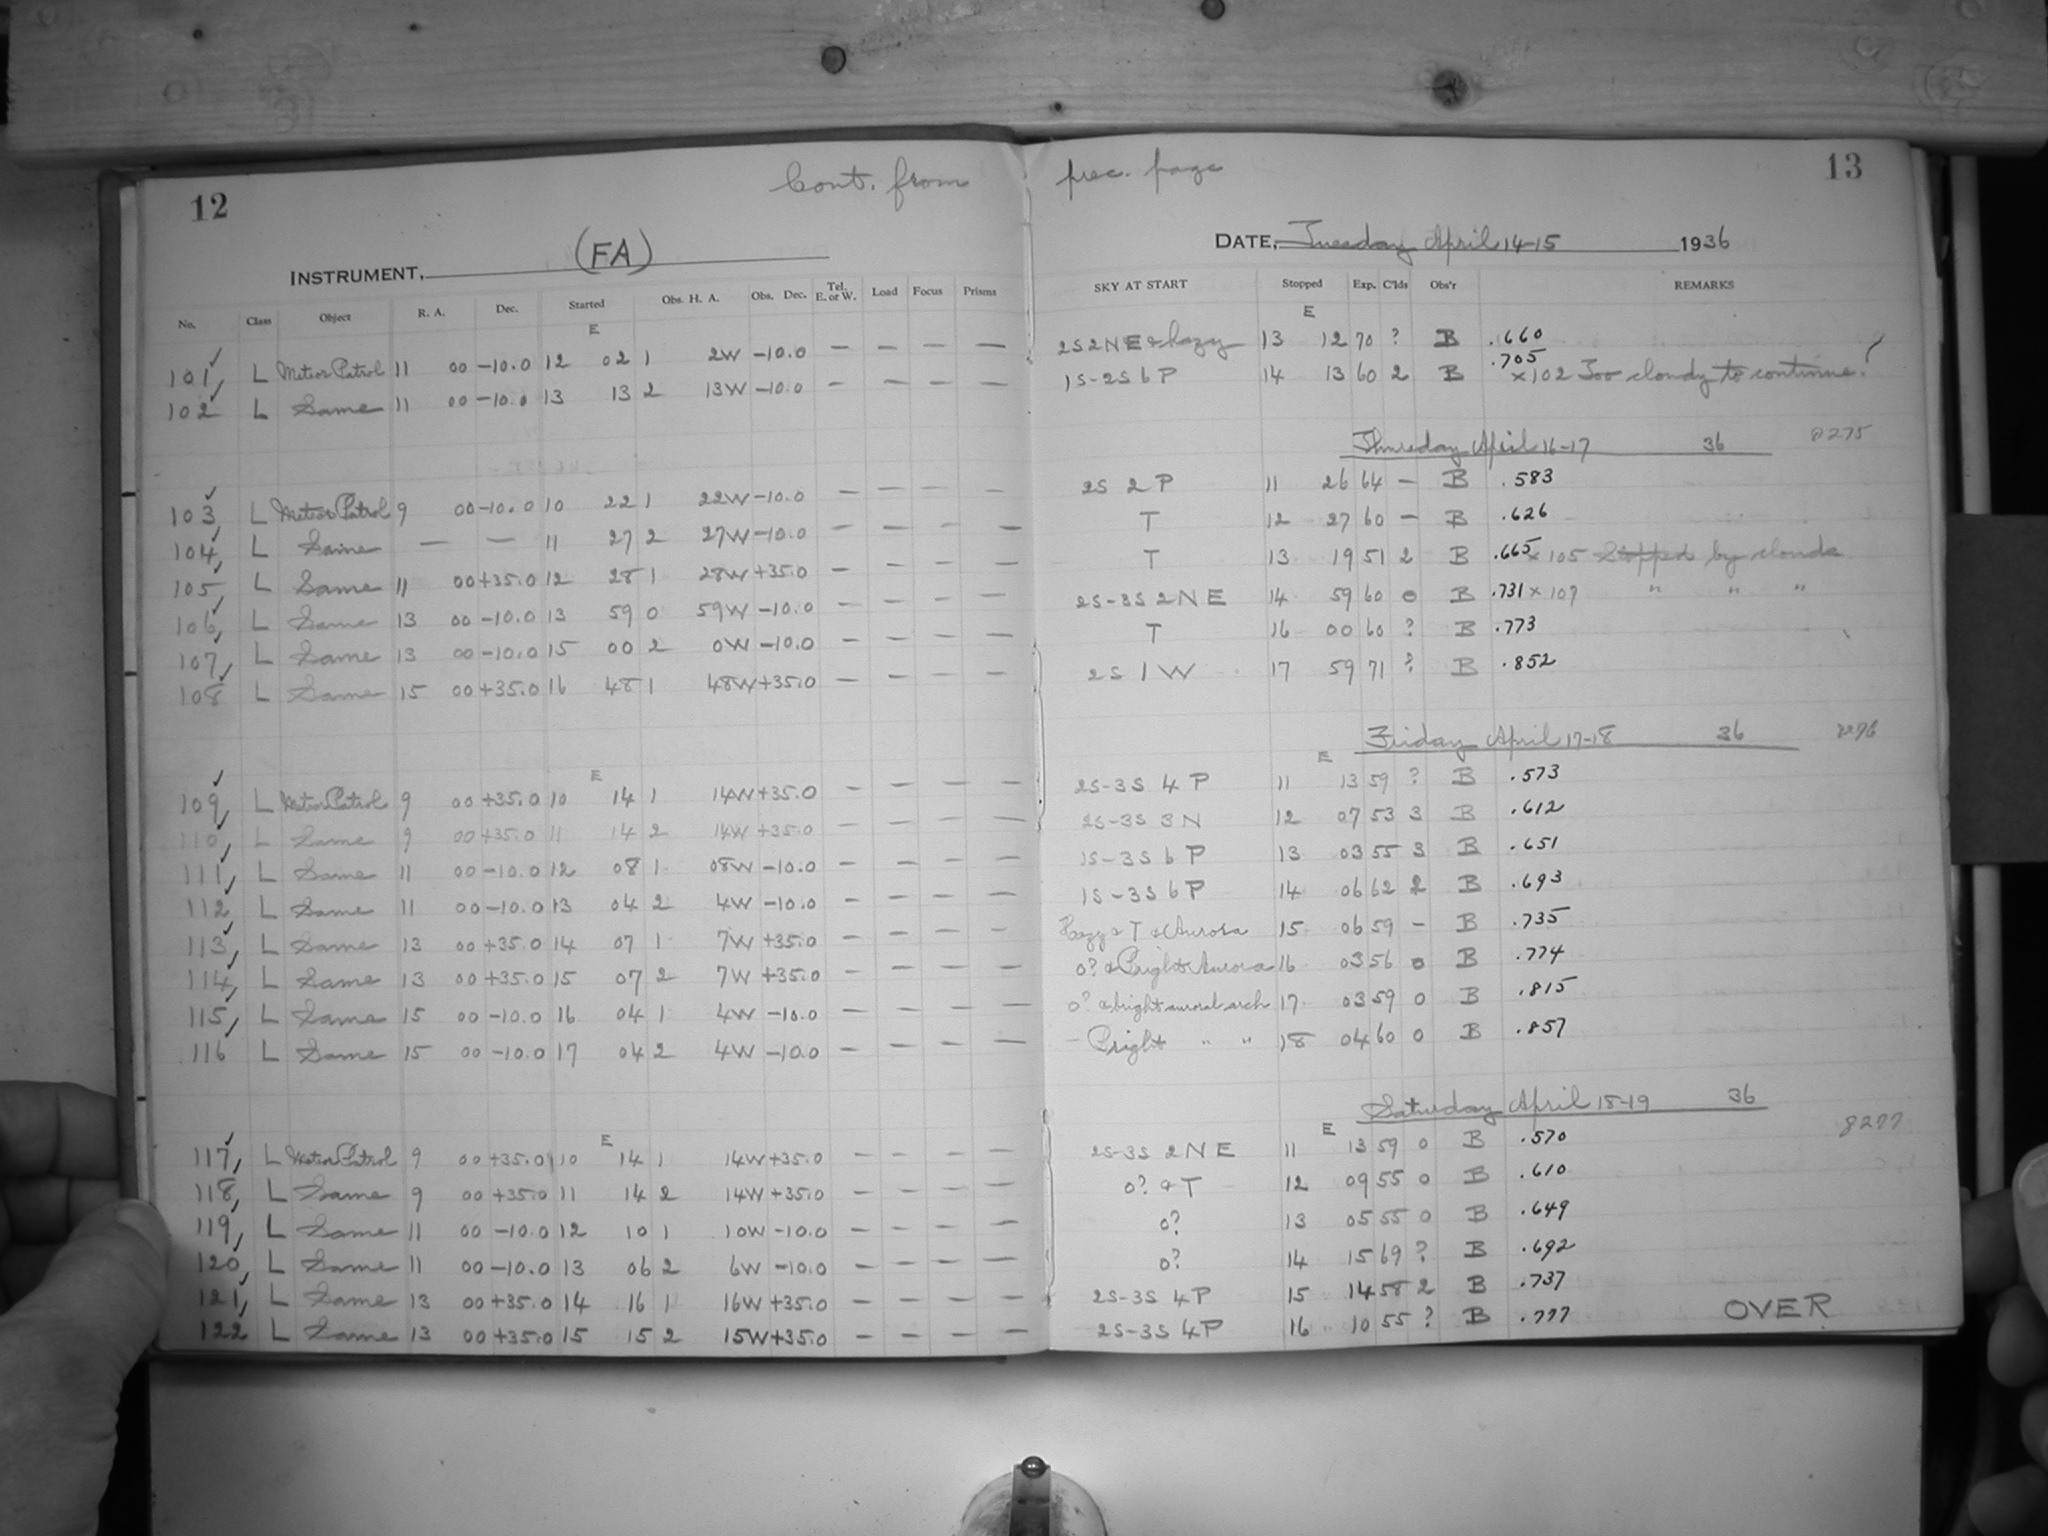 12 Cont. from prec. page 13
INSTRUMENT, (FA) DATE, Tuesday April 14-15 1936
No. Class Object R. A. Dec. Started Obs. H. A. Obs. Dec. Tel. E. or W. Load Focus Prisms SKY AT START Stopped Exp. C'lds Obs'r REMARKS
E E
101 L Meteor Patrol 11 00 -10.0 12 02 1 2W -10.0 — — — — 2S 2NE & hazy 13 12 70 ? B .660
102 L Same 11 00 -10.0 13 13 2 13W -10.0 — — — — 1S-2S 6P 14 13 60 2 B .705 x102 Too cloudy to continue!
Thursday April 16-17 36 8275
103 L Meteor Patrol 9 00 -10.0 10 22 1 22W -10.0 — — — — 2S 2P 11 26 64 — B .583
104 L Same — — 11 27 2 27W -10.0 — — — — T 12 27 60 — B .626
105 L Same 11 00 +35.0 12 28 1 28W +35.0 — — — — T 13 19 51 2 B .665 x105 Stopped by clouds
106 L Same 13 00 -10.0 13 59 0 59W -10.0 — — — — 2S-3S 2NE 14 59 60 0 B .731 x107 " " "
107 L Same 13 00 -10.0 15 00 2 0W -10.0 — — — — T 16 00 60 ? B .773
108 L Same 15 00 +35.0 16 48 1 48W +35.0 — — — — 2S 1W 17 59 71 ? B .852
Friday April 17-18 36
E E
109 L Meteor Patrol 9 00 +35.0 10 14 1 14W +35.0 — — — — 2S-3S 4P 11 13 59 ? B .573
110 L Same 9 00 +35.0 11 14 2 14W +35.0 — — — — 2S-3S 3N 12 07 53 3 B .612
111 L Same 11 00 -10.0 12 08 1 08W -10.0 — — — — 1S-3S 6P 13 03 55 3 B .651
112 L Same 11 00 -10.0 13 04 2 4W -10.0 — — — — 1S-3S 6P 14 06 62 2 B .693
113 L Same 13 00 +35.0 14 07 1 7W +35.0 — — — — Hazy & T & Aurora 15 06 59 — B .735
114 L Same 13 00 +35.0 15 07 2 7W +35.0 — — — — 0? & Bright Aurora 16 03 56 0 B .774
115 L Same 15 00 -10.0 16 04 1 4W -10.0 — — — — 0? & bright auroral arch 17 03 59 0 B .815
116 L Same 15 00 -10.0 17 04 2 4W -10.0 — — — — Bright " " 18 04 60 0 B .857
Saturday April 18-19 36 8277
E E
117 L Meteor Patrol 9 00 +35.0 10 14 1 14W +35.0 — — — — 2S-3S 2NE 11 13 59 0 B .570
118 L Same 9 00 +35.0 11 14 2 14W +35.0 — — — — 0? & T 12 09 55 0 B .610
119 L Same 11 00 -10.0 12 10 1 10W -10.0 — — — — 0? 13 05 55 0 B .649
120 L Same 11 00 -10.0 13 06 2 6W -10.0 — — — — 0? 14 15 69 ? B .692
121 L Same 13 00 +35.0 14 16 1 16W +35.0 — — — — 2S-3S 4P 15 14 58 2 B .737
122 L Same 13 00 +35.0 15 15 2 15W +35.0 — — — — 2S-3S 4P 16 10 55 ? B .777
OVER